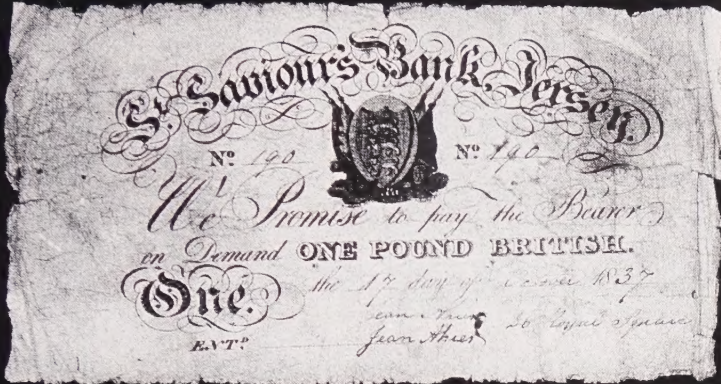 St. Saviour's Bank, Jersey.
No. 190 No. 190
We Promise to pay the Bearer
on Demand ONE POUND BRITISH.
One. the 17 day of 1837
Jean
ENTD. Jean Ahier 20 Royal Square